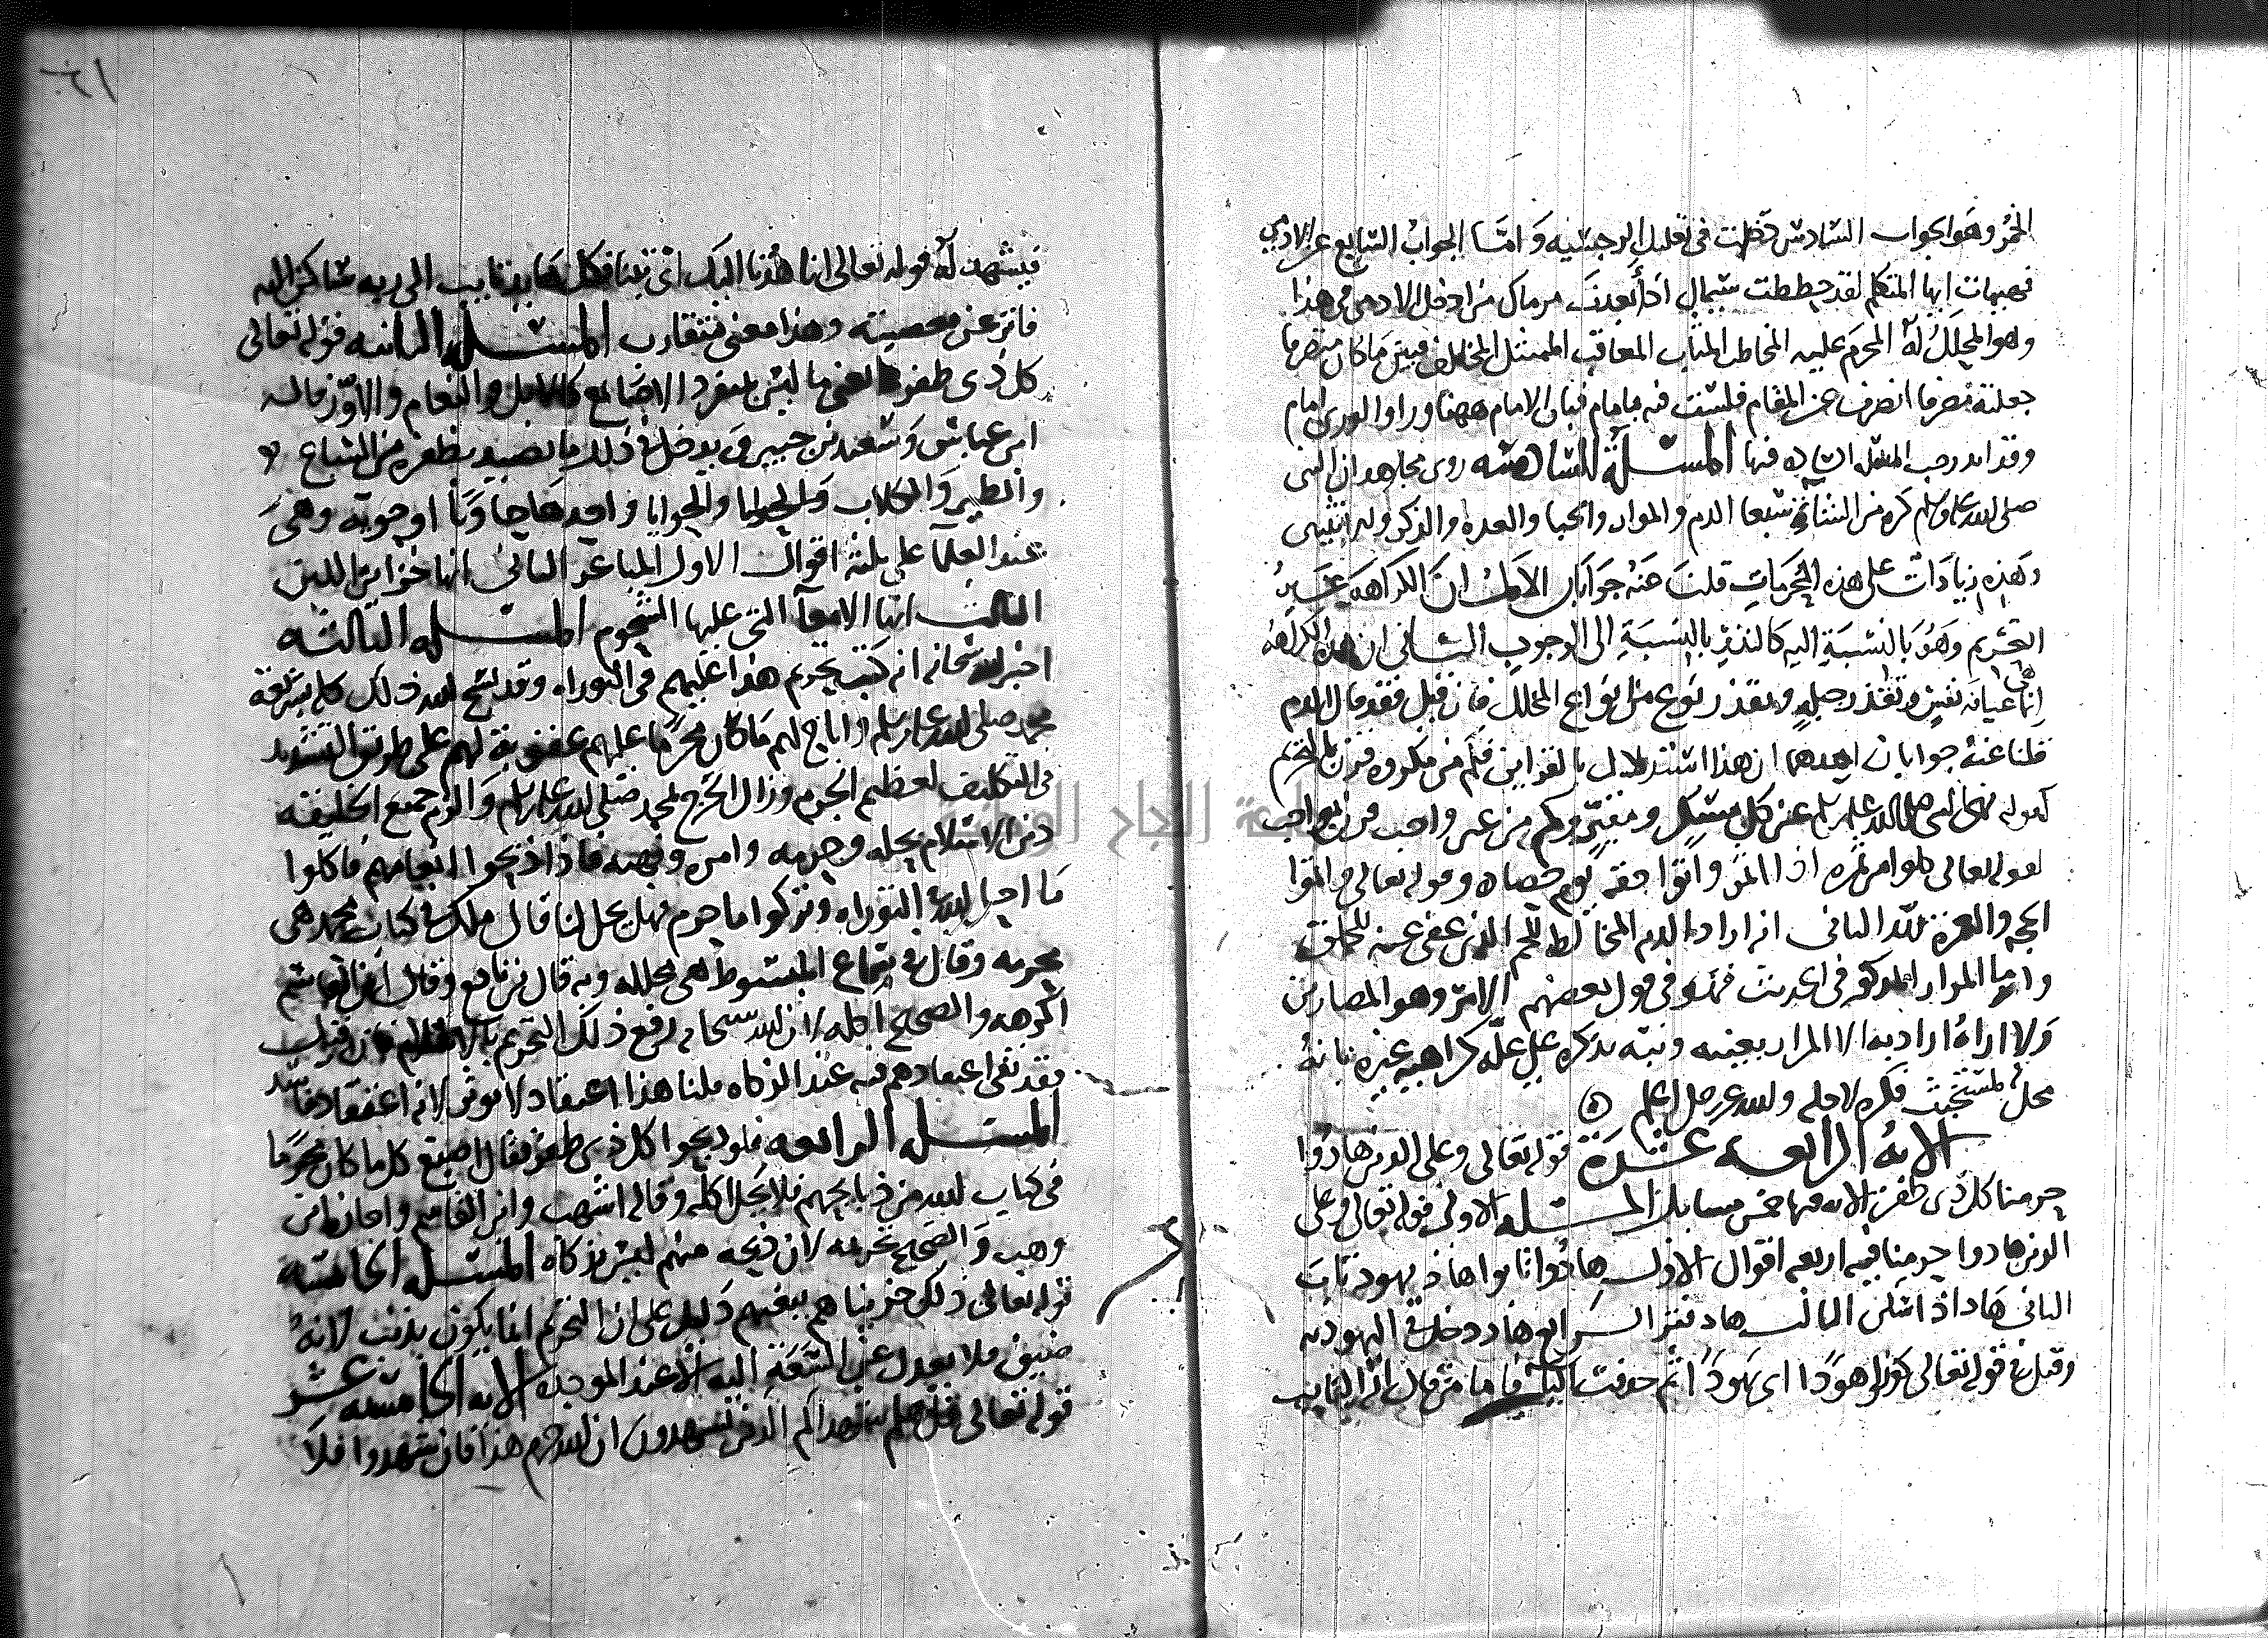 الخمر وهو الجواب السادس دخلت في تعليل الرجسية وأما الجواب السابع عن الادمي
فهيهات ايها المتكلم لقد حططت أبعدت مرماك من ادخل الادمي في هذا
وهو المحلل له المحرم عليه المخاطب المثاب المعاقب الممتثل المخالف فبين ما كان متصرفا
جعلته مصرفا انصرف عن المقام فلست فيه بامام فبان الامام ههنا ورا والورى امام
وقد اندرجت المسلة فيها المسلة الثامنه روى مجاهد ان النبي
صلى الله عليه وسلم كره من الشاة سبعا الدم والمرار والحيا والغده والذكر والانثيين
وهذه زيادات على هذه المحرمات قلنا عنه جوابان الاول ان الكراهة غير
التحريم وهو بالنسبة اليه كالندب بالنسبة الى الوجوب الثاني ان هذه الكراهة
انما هي عيافة نفس وتقذر جبلة وتقذر نوع من انواع المحلل فان قيل فقد قال الدم
قلنا عنه جوابان احدهما ان هذا استدلال بالقرائن فكم من مكروه قرن بالمحرم
كقوله نهى النبي صلى الله عليه وسلم عن كل مسكر ومفتر وكم من غير واجب قرن بواجب
لقوله تعالى كلوا من ثمره اذا اثمر واتوا حقه يوم حصاده وقوله تعالى واتموا
الحج والعمرة لله الثاني انه اراد الدم المخالط للحم الذي عفي عنه للخلق
واما المرار المذكور في الحديث في قول بعضهم الامر وهو المصارين
ولا اراه اراد به الا المرار بعينه ونبه بذكره على علة كراهية غيره بانه
محل المستخبث فكره لاجله والله عز وجل اعلم
الاية الرابعة عشرة قوله تعالى وعلى الذين هادوا
حرمنا كل ذي ظفر الاية فيها خمس مسايل المسلة الاولى قوله تعالى وعلى
الذين هادوا حرمنا فيه اربعة اقوال الاول هادوا تابوا هاد يهود تاب
الثاني هاد اذا سكن الثالث هاد فتر الرابع هاد دخل في اليهودية
وقيل في قوله تعالى كونوا هودا اي يهودا ثم حذفت اليا فاما من قال انه التايب
فيشهد له قوله تعالى انا هدنا اليك اي تبنا فكل هايد تايب الى ربه ساكن اليه
فاتر عن معصيته وهذا معنى متقارب المسلة الثانية قوله تعالى
كل ذي ظفر يعني ما ليس بمنفرد الاصابع كالابل والنعام والاوز قاله
ابن عباس وسعيد بن جبير وقد يدخل في ذلك ما يصيد بظفره من السباع
والطير والكلاب والحوايا واحدها حاويا او حوية وهي
عند العلما على ثلثة اقوال الاول المباعر الثاني انها خزاين اللبن
الثالث انها الامعا التي عليها الشحوم المسلة الثالثه
اخبر الله سبحانه انه كتب تحريم هذا عليهم في التوراه وقد نسخ الله ذلك كله بشريعة
محمد صلى الله عليه وسلم واباح لهم ما كان محرما عليهم عقوبة لهم على طريق التشديد
في التكليف لعظيم الجرم وزال الحرج بمحمد صلى الله عليه وسلم والزم جميع الخليقه
دين الاسلام بحله وحرمه وامره ونهيه فاذا ذبحوا انعامهم فاكلوا
ما احل الله في التوراه وتركوا ما حرم فهل يحل لنا قال ملك في كتاب محمد هي
محرمه وقال في سماع المبسوط هي محلله وبه قال ابن نافع وقال ابن القاسم
اكرهه والصحيح اكله لان الله سبحانه رفع ذلك التحريم بالاسلام فان قيل
فقد بقي اعتقادهم فيه عند الذكاه قلنا هذا اعتقاد لا يوثر لانه اعتقاد فاسد
المسلة الرابعه فلو ذبحوا كل ذي ظفر فقال اصبغ كل ما كان محرما
في كتاب الله من ذبايحهم فلا يحل اكله وقاله اشهب وابن القاسم واجازه ابن
وهب والصحيح تحريمه لان ذبحه منهم ليس بذكاه المسلة الخامسه
قوله تعالى ذلك جزيناهم ببغيهم دليل على ان التحريم انما يكون بذنب لانه
ضيق فلا يعدل عن السعة اليه الا عند الموجده الاية الخامسة عشر
قوله تعالى قل هلم شهداكم الذين يشهدون ان الله حرم هذا فان شهدوا فلا